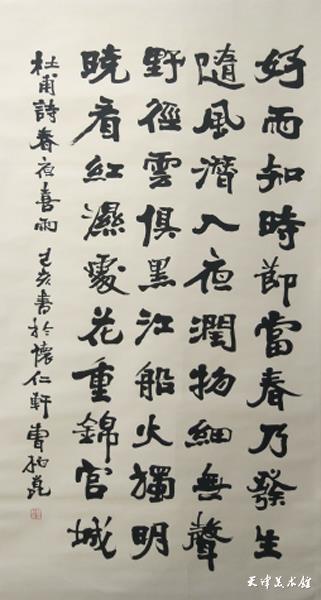 好雨知時節當春乃發生
隨風潛入夜潤物細無聲
野徑雲俱黑江船火獨明
曉看紅濕處花重錦官城
杜甫詩春夜喜雨 己亥書於懷仁軒 曹柏崑
天津美术馆